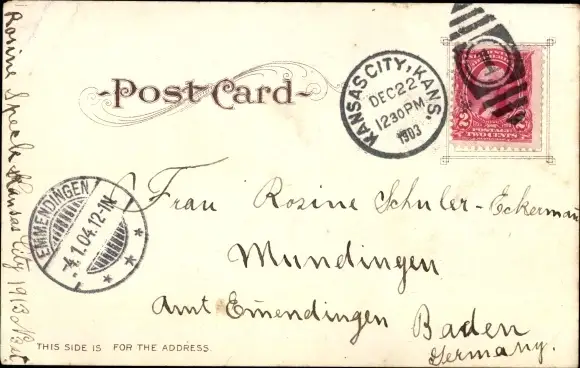 Post Card
KANSAS CITY, KANS.
DEC 22
12 30 PM
1903
POSTAGE
2 TWO CENTS 2
EMMENDINGEN
4.1.04.12-1N.
Frau Rosine Schuler-Eckermann
Mundingen
Amt Emendingen Baden
Germany.
THIS SIDE IS FOR THE ADDRESS.
Rosine Speck Kansas City 1913 N 3 st